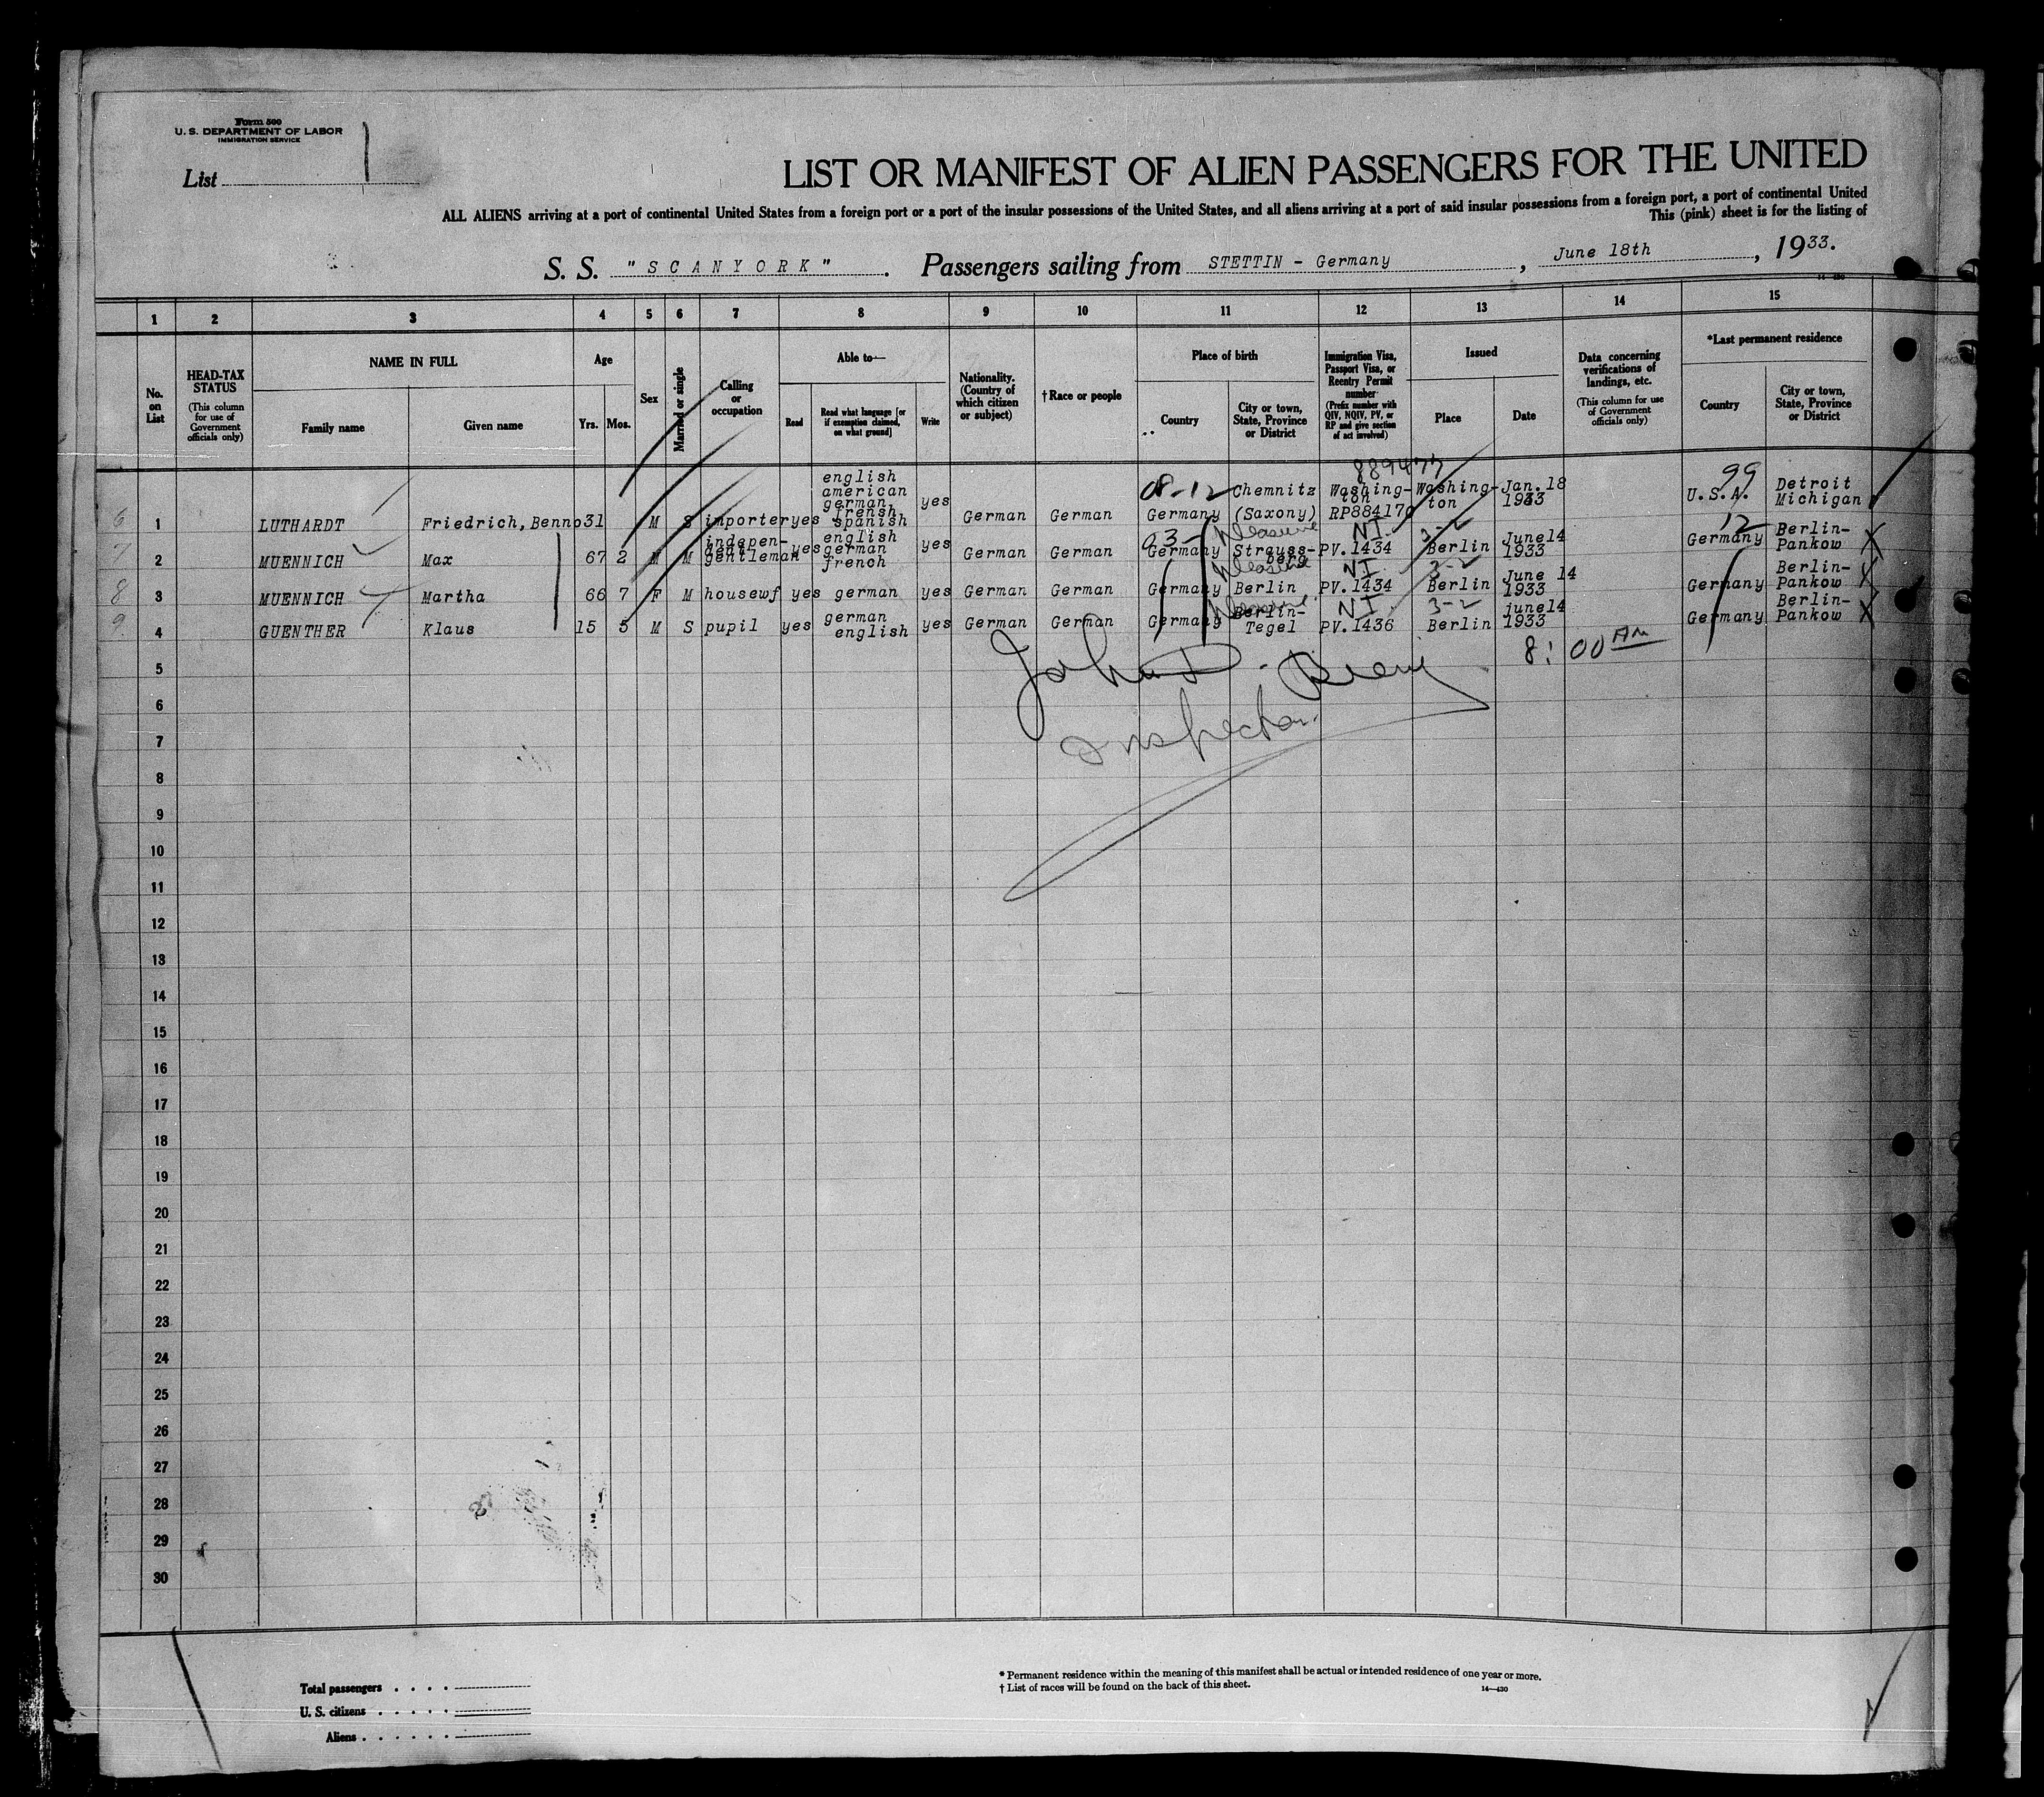 Form 500
U. S. DEPARTMENT OF LABOR
IMMIGRATION SERVICE
List
LIST OR MANIFEST OF ALIEN PASSENGERS FOR THE UNITED
ALL ALIENS arriving at a port of continental United States from a foreign port or a port of the insular possessions of the United States, and all aliens arriving at a port of said insular possessions from a foreign port, a port of continental United
This (pink) sheet is for the listing of
S. S. "SCANYORK". Passengers sailing from STETTIN - Germany, June 18th, 1933.
14-430
1 2 3 4 5 6 7 8 9 10 11 12 13 14 15
No. on List
HEAD-TAX STATUS
(This column for use of Government officials only)
NAME IN FULL
Family name Given name
Age
Yrs. Mos.
Sex
Married or single
Calling or occupation
Able to—
Read Read what language [or if exemption claimed, on what ground] Write
Nationality. (Country of which citizen or subject)
†Race or people
Place of birth
Country City or town, State, Province or District
Immigration Visa, Passport Visa, or Reentry Permit number
(Prefix number with QIV, NQIV, PV, or RP and give section of act involved)
Issued
Place Date
Data concerning verifications of landings, etc.
(This column for use of Government officials only)
*Last permanent residence
Country City or town, State, Province or District
6 1 LUTHARDT Friedrich, Benno 31 M S inporter yes english american german frensh spanish yes German German 08-12 Germany Chemnitz (Saxony) 889477 Washington RP884170 Washington Jan.18 1933 99 U.S.A. Detroit Michigan
7 2 MUENNICH Max 67 2 M M indepen- dent gentleman yes english german french yes German German 03- Germany Strauss- berg NI PV.1434 3-2 Berlin June14 1933 12 Germany Berlin- Pankow
8 3 MUENNICH Martha 66 7 F M housewf yes german yes German German Germany Berlin NI PV.1434 3-2 Berlin June 14 1933 Germany Berlin- Pankow
9 4 GUENTHER Klaus 15 5 M S pupil yes german english yes German German Germany Berlin- Tegel NI PV.1436 3-2 Berlin june14 1933 Germany Berlin- Pankow
8:00 AM
5
John D.
6
Inspector
7
8
9
10
11
12
13
14
15
16
17
18
19
20
21
22
23
24
25
26
27
28
29
30
Total passengers
U. S. citizens
Aliens
* Permanent residence within the meaning of this manifest shall be actual or intended residence of one year or more.
† List of races will be found on the back of this sheet.
14—430